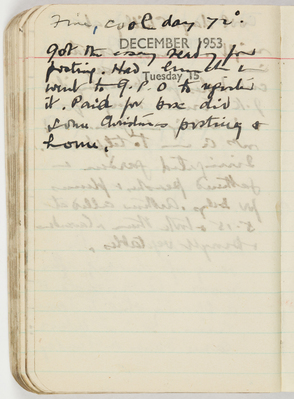 Fine, cool day 72°.
DECEMBER 1953
Got the essay ready for
posting. Had lunch &
Tuesday 15
went to G.P.O to register
it. Paid for box did
some Christmas posting &
home.